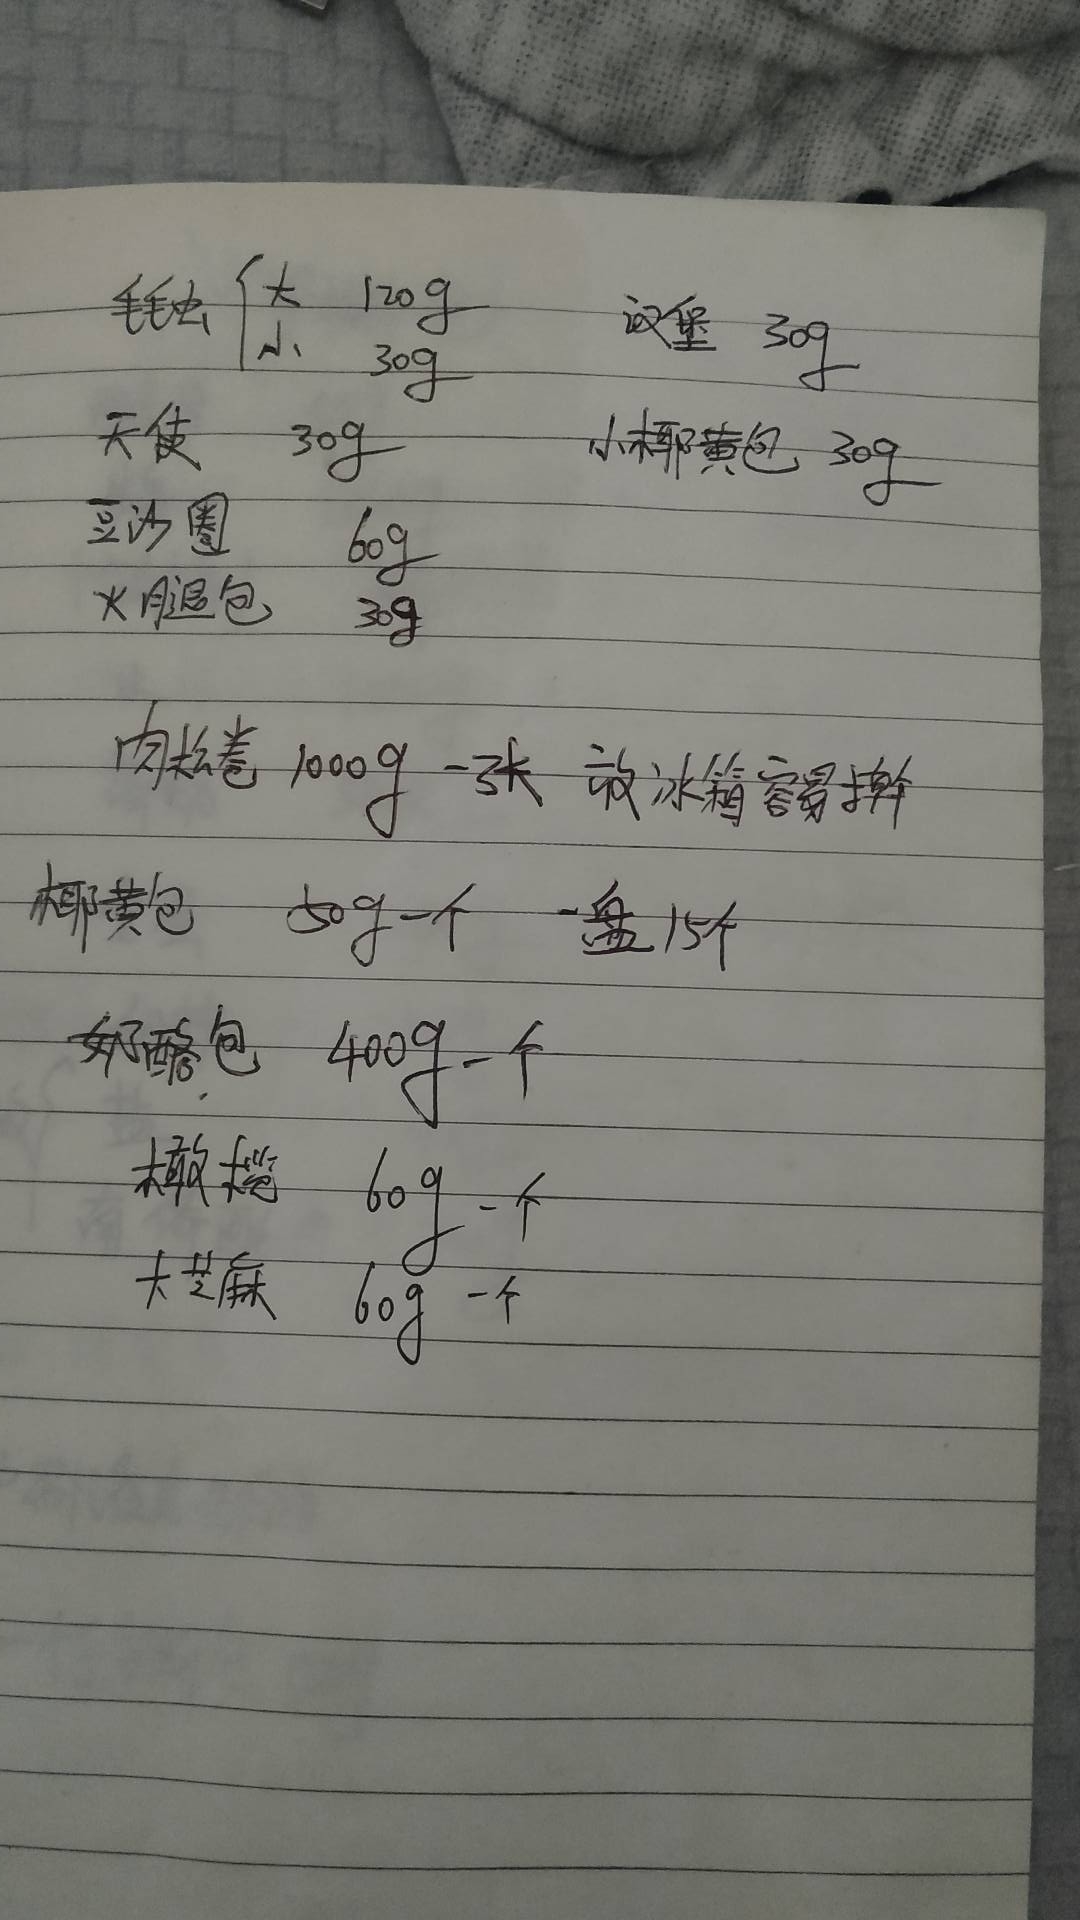 毛毛虫 { 大 120g 汉堡 30g
小 30g
天使 30g 小椰黄包 30g
豆沙圈 60g
火腿包 30g
肉松卷 1000g 一张 放冰箱容易擀
椰黄包 50g一个 一盘15个
奶酪包 400g一个
橄榄 60g 一个
大芝麻 60g 一个